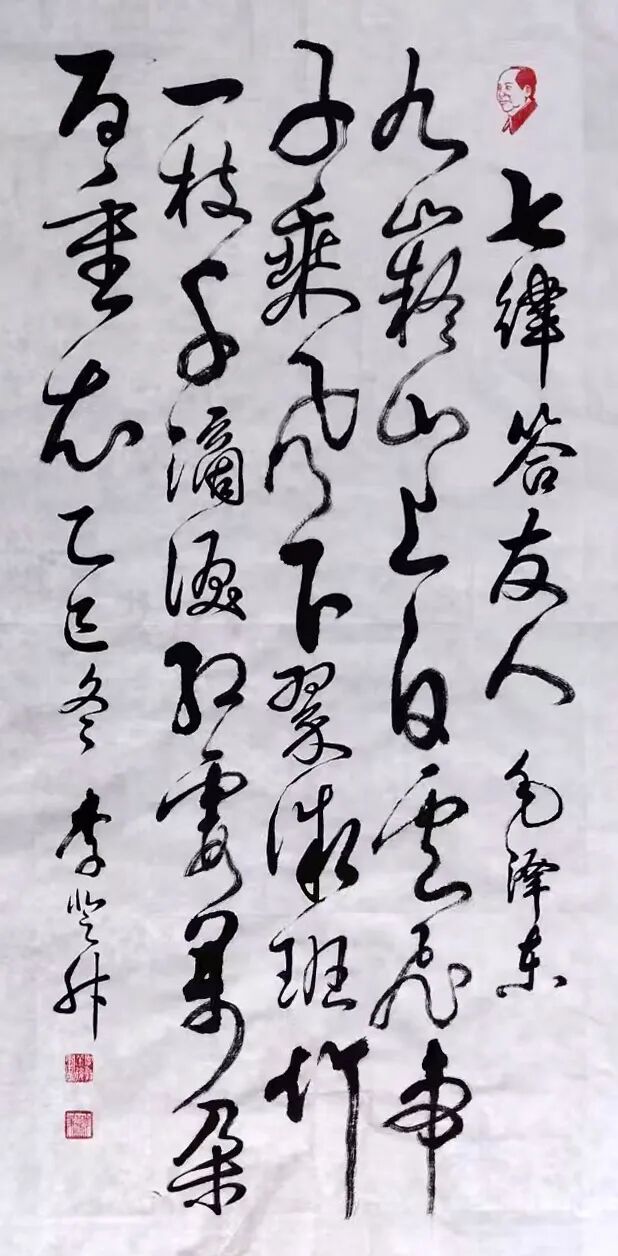 七律答友人 毛泽东
九嶷山上白雲飞帝
子乘风下翠微班竹
一枝千滴淚红霞萬朵
百重衣 乙巳冬 李